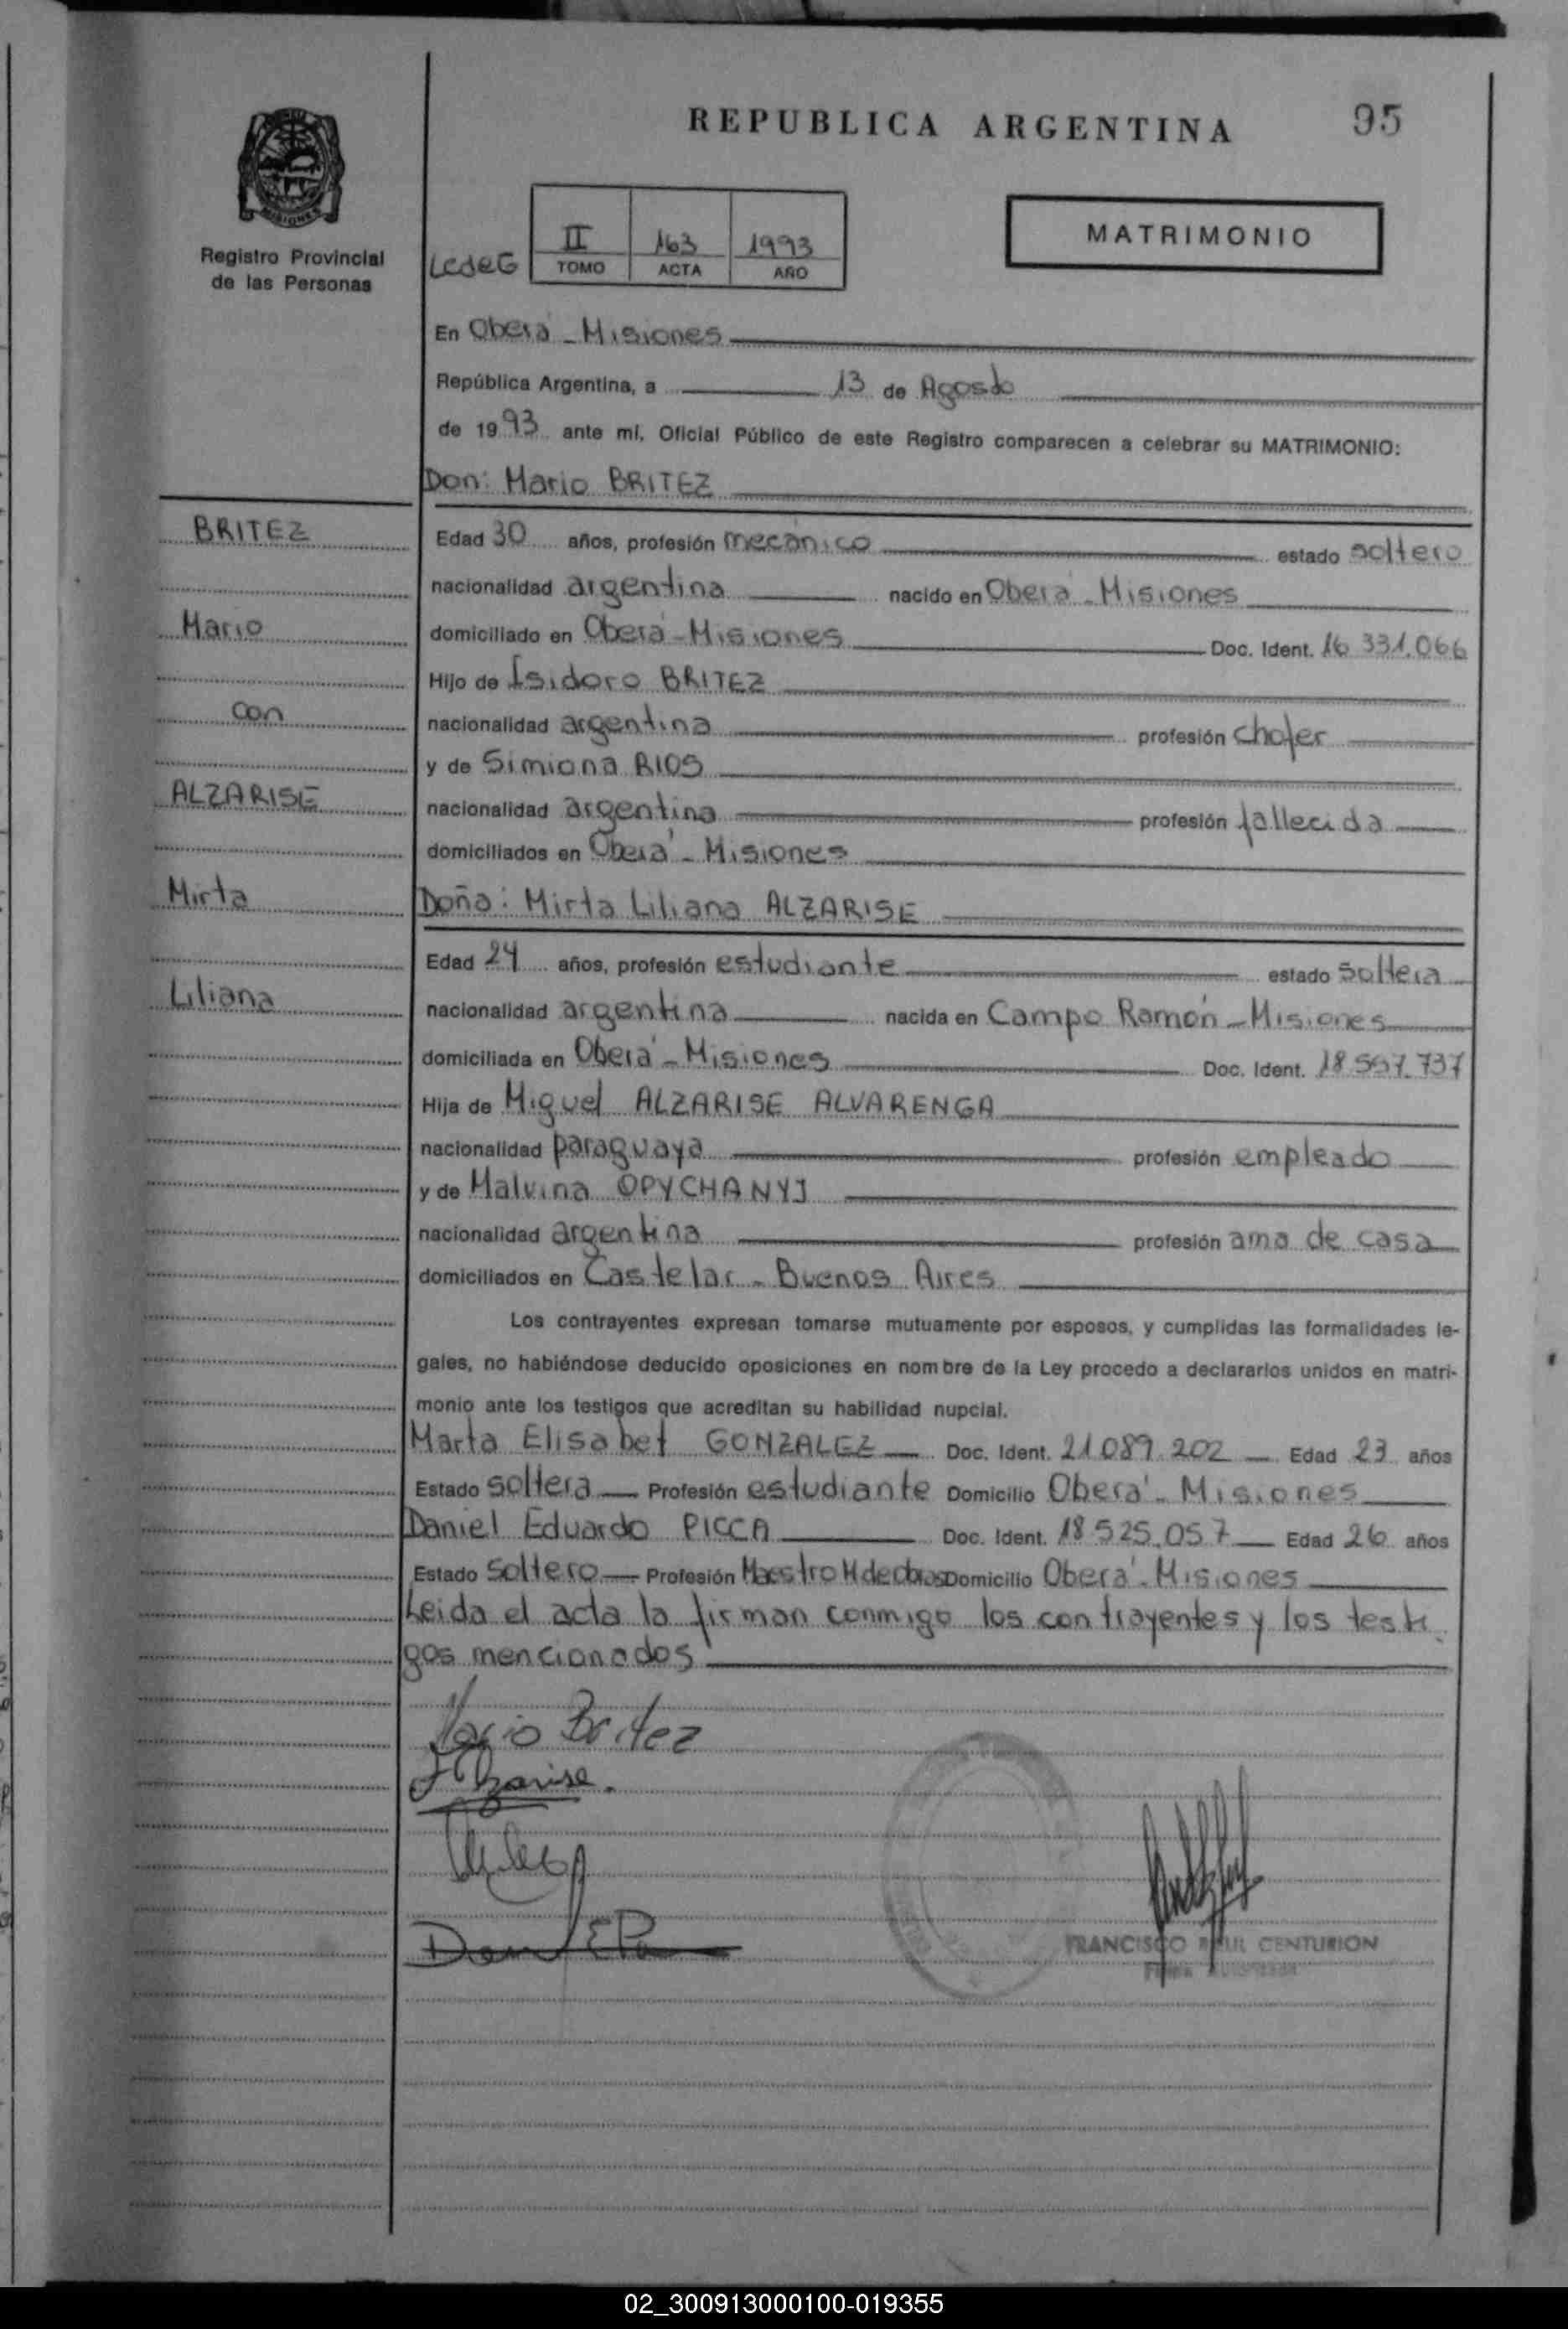 REPUBLICA ARGENTINA
95
MISIONES
Registro Provincial
de las Personas
LcdeG
II
TOMO
163
ACTA
1993
AÑO
MATRIMONIO
En Oberá - Misiones
República Argentina, a 13 de Agosto
de 1993 ante mí, Oficial Público de este Registro comparecen a celebrar su MATRIMONIO:
Don: Mario BRITEZ
BRITEZ
Mario
con
ALZARISE
Mirta
Liliana
Edad 30 años, profesión mecánico estado soltero
nacionalidad argentina nacido en Oberá - Misiones
domiciliado en Oberá - Misiones Doc. Ident. 16 331.066
Hijo de Isidoro BRITEZ
nacionalidad argentina profesión chofer
y de Simiona RIOS
nacionalidad argentina profesión fallecida
domiciliados en Oberá - Misiones
Doña: Mirta Liliana ALZARISE
Edad 24 años, profesión estudiante estado soltera
nacionalidad argentina nacida en Campo Ramón - Misiones
domiciliada en Oberá - Misiones Doc. Ident.
Hija de Miguel ALZARISE ALVARENGA
nacionalidad paraguaya profesión empleado
y de Malvina OPYCHANYJ
nacionalidad argentina profesión ama de casa
domiciliados en Castelar - Buenos Aires
Los contrayentes expresan tomarse mutuamente por esposos, y cumplidas las formalidades le-
gales, no habiéndose deducido oposiciones en nombre de la Ley procedo a declararlos unidos en matri-
monio ante los testigos que acreditan su habilidad nupcial.
Marta Elisabet GONZALEZ Doc. Ident. 21.089.202 Edad 23 años
Estado soltera Profesión estudiante Domicilio Oberá - Misiones
Daniel Eduardo PICCA Doc. Ident. 18.525.057 Edad 26 años
Estado soltero Profesión Maestro M de obras Domicilio Oberá - Misiones
Leida el acta la firman conmigo los contrayentes y los testi
gos mencionados
Mario Britez
Alzarise.
FRANCISCO RAUL CENTURION
02_300913000100-019355